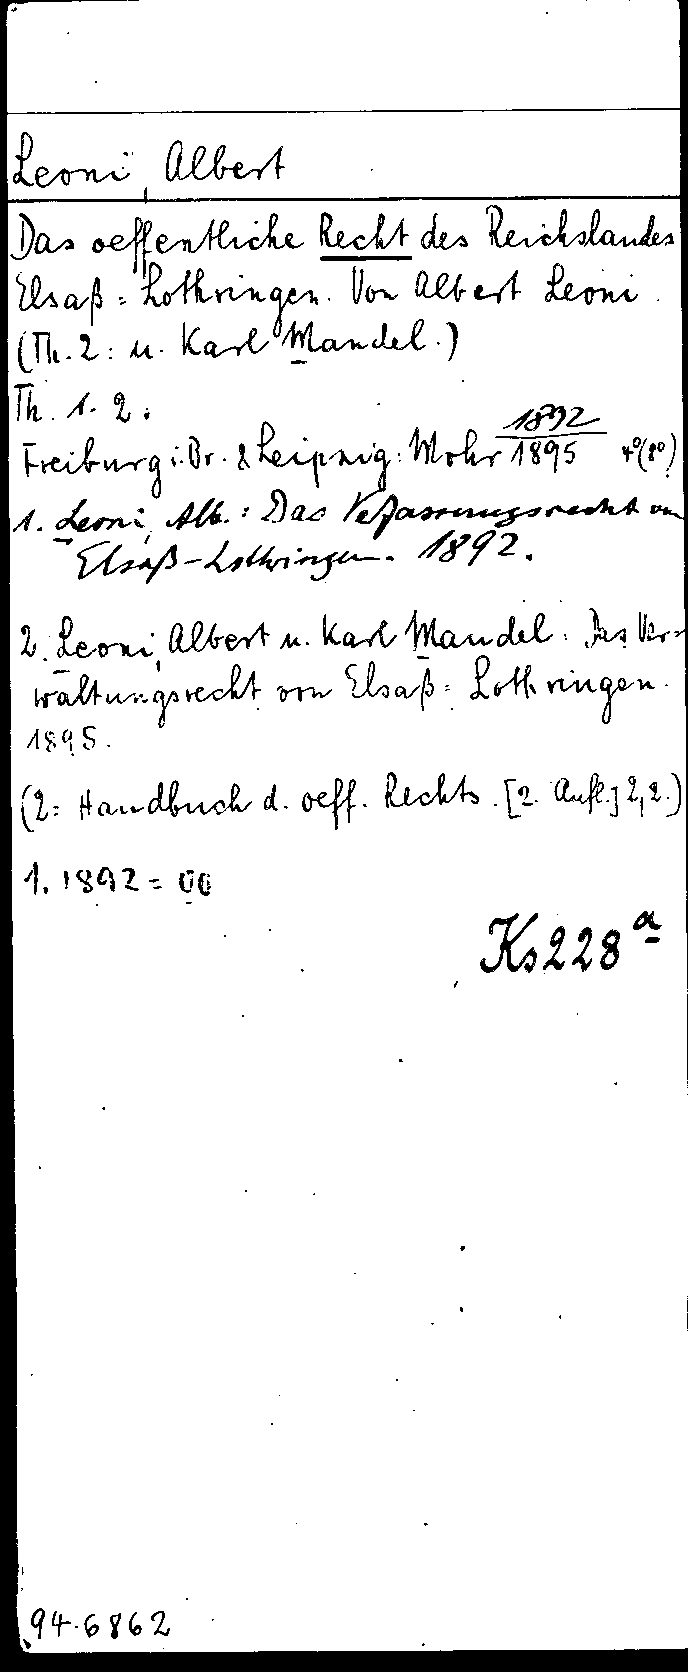 Leoni, Albert
Das oeffentliche Recht des Reichslandes
Elsaß=Lothringen. Von Albert Leoni.
(Th. 2: u. Karl Mandel.)
Th. 1. 2.
Freiburg i. Br. & Leipzig: Mohr 1892/1895 4°(8°)
1. Leoni, Alb.: Das Verfassungsrecht von
Elsaß-Lothringen. 1892.
2. Leoni, Albert u. Karl Mandel: Das Ver=
waltungsrecht von Elsaß=Lothringen.
1895.
(2= Handbuch d. oeff. Rechts. [2. Aufl.] 2,2.)
1. 1892 = 00
Ks 228 a
94.6862